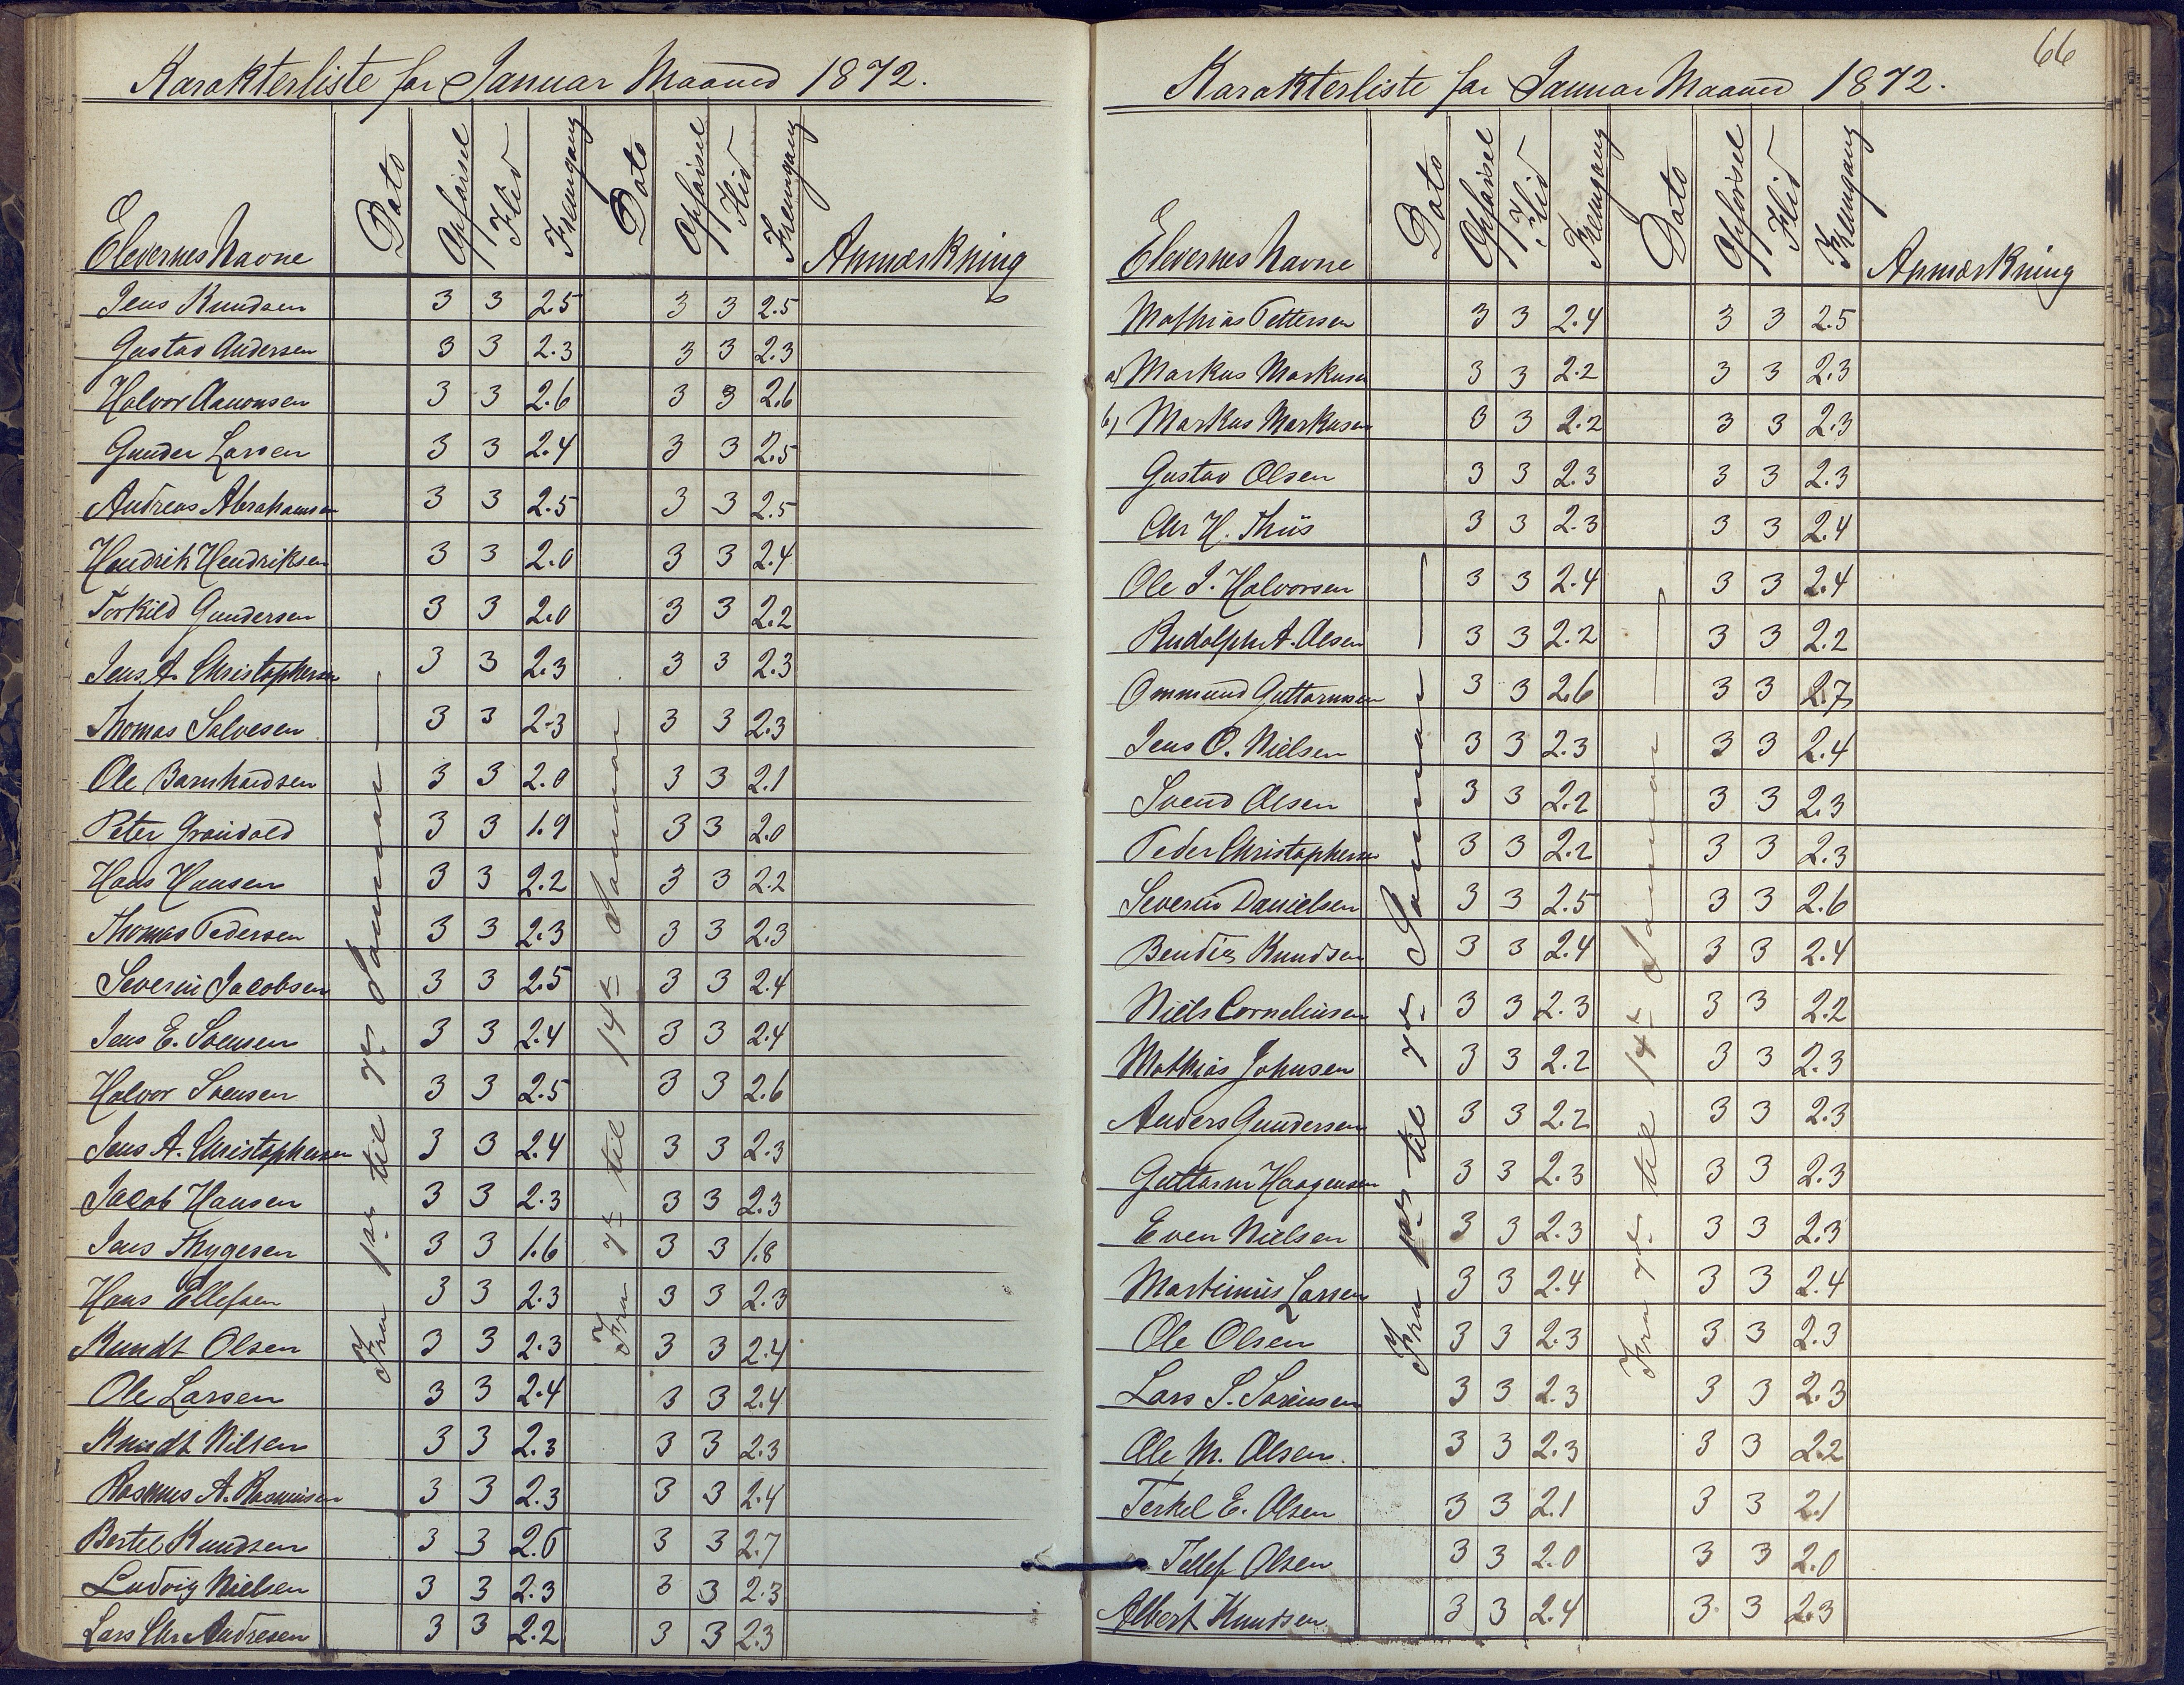 Karakterliste for Januar Maaned 1872.
Elevernes Navne Dato Opførsel Flid Fremgang Dato Opførsel Flid Fremgang Anmærkning
Fra 1ste til 7de Januar
Fra 7de til 14de Januar
Jens Knudsen 3 3 2.5 3 3 2.5
Gustav Andersen 3 3 2.3 3 3 2.3
Halvor Aanonsen 3 3 2.6 3 3 2.6
Gunder Larsen 3 3 2.4 3 3 2.5
Andreas Abrahamsen 3 3 2.5 3 3 2.5
Hendrik Hendriksen 3 3 2.0 3 3 2.4
Torkild Gundersen 3 3 2.0 3 3 2.2
Jens A. Christophersen 3 3 2.3 3 3 2.3
Thomas Salvesen 3 3 2.3 3 3 2.3
Ole Barnhardsen 3 3 2.0 3 3 2.1
Peter 3 3 1.9 3 3 2.0
Hans Hansen 3 3 2.2 3 3 2.2
Thomas Pedersen 3 3 2.3 3 3 2.3
Severin Jacobsen 3 3 2.5 3 3 2.4
Jens E. Svensen 3 3 2.4 3 3 2.4
Halvor Svensen 3 3 2.5 3 3 2.6
Jens A. Christophersen 3 3 2.4 3 3 2.3
Jacob Hansen 3 3 2.3 3 3 2.3
Jens Thygesen 3 3 1.6 3 3 1.8
Hans Ellefsen 3 3 2.3 3 3 2.3
Knudt Olsen 3 3 2.3 3 3 2.4
Ole Larsen 3 3 2.4 3 3 2.4
Knudt Nilsen 3 3 2.3 3 3 2.3
Rasmus A. Rasmusen 3 3 2.3 3 3 2.4
Bertel Knudsen 3 3 2.6 3 3 2.7
Ludvig Nielsen 3 3 2.3 3 3 2.3
Lars Chr Andresen 3 3 2.2 3 3 2.3
66
Karakterliste for Januar Maaned 1872.
Elevernes Navne Dato Opførsel Flid Fremgang Dato Opførsel Flid Fremgang Anmærkning
Fra 1ste til 7de Januar
Fra 7de til 14de Januar
Mathias Pettersen 3 3 2.4 3 3 2.5
a) Markus Markusen 3 3 2.2 3 3 2.3
b) Markus Markusen 3 3 2.2 3 3 2.3
Gustav Olsen 3 3 2.3 3 3 2.3
Chr H. Thiis 3 3 2.3 3 3 2.4
Ole J. Halvorsen 3 3 2.4 3 3 2.4
Rudolph A. Olsen 3 3 2.2 3 3 2.2
Ommund Guttormsen 3 3 2.6 3 3 2.7
Jens O. Nielsen 3 3 2.3 3 3 2.4
Svend Olsen 3 3 2.2 3 3 2.3
Peder Christophersen 3 3 2.2 3 3 2.3
Severin Danielsen 3 3 2.5 3 3 2.6
Bendix Knudsen 3 3 2.4 3 3 2.4
Niels Corneliusen 3 3 2.3 3 3 2.2
Mathias Johnsen 3 3 2.2 3 3 2.3
Anders Gundersen 3 3 2.2 3 3 2.3
Guttorm Haagensen 3 3 2.3 3 3 2.3
Even Nielsen 3 3 2.3 3 3 2.3
Martinius Larsen 3 3 2.4 3 3 2.4
Ole Olsen 3 3 2.3 3 3 2.3
Lars S. Sørensen 3 3 2.3 3 3 2.3
Ole M. Olsen. 3 3 2.3 3 3 2.2
Terkel E. Olsen 3 3 2.1 3 3 2.1
Tellef Olsen 3 3 2.0 3 3 2.0
Albert Knudsen 3 3 2.4 3 3 2.3